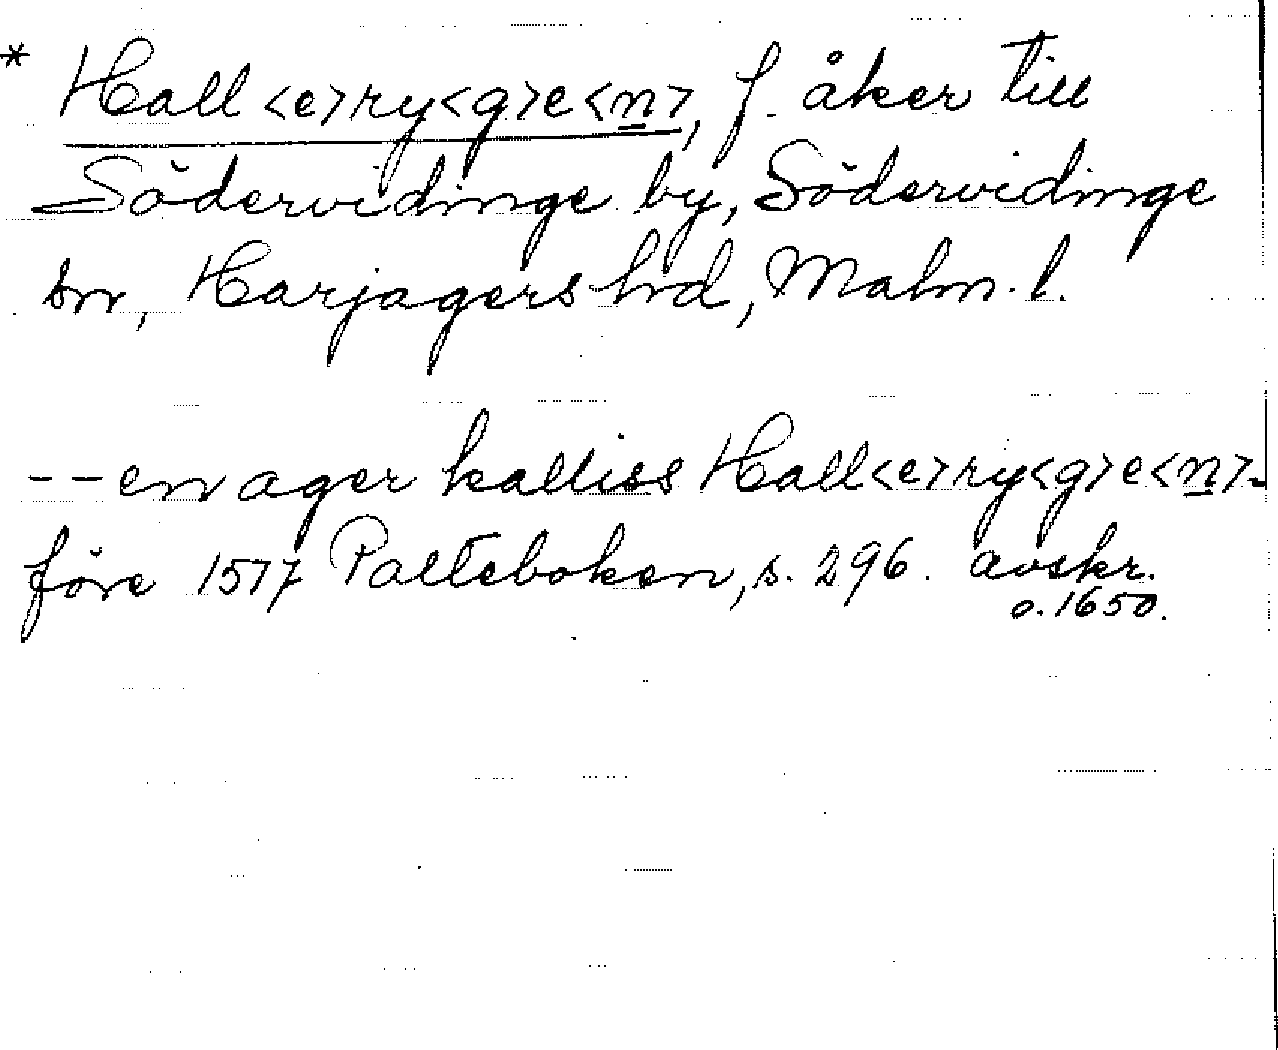 * Hall<e>ry<g>e<n>, f. åker till
Södervidinge by, Södervidinge
sn, Harjagers hd, Malm. l.
--en ager kalliss Hall<e>ry<g>e<n>-
före 1517 Palteboken, s. 296. avskr.
o. 1650.